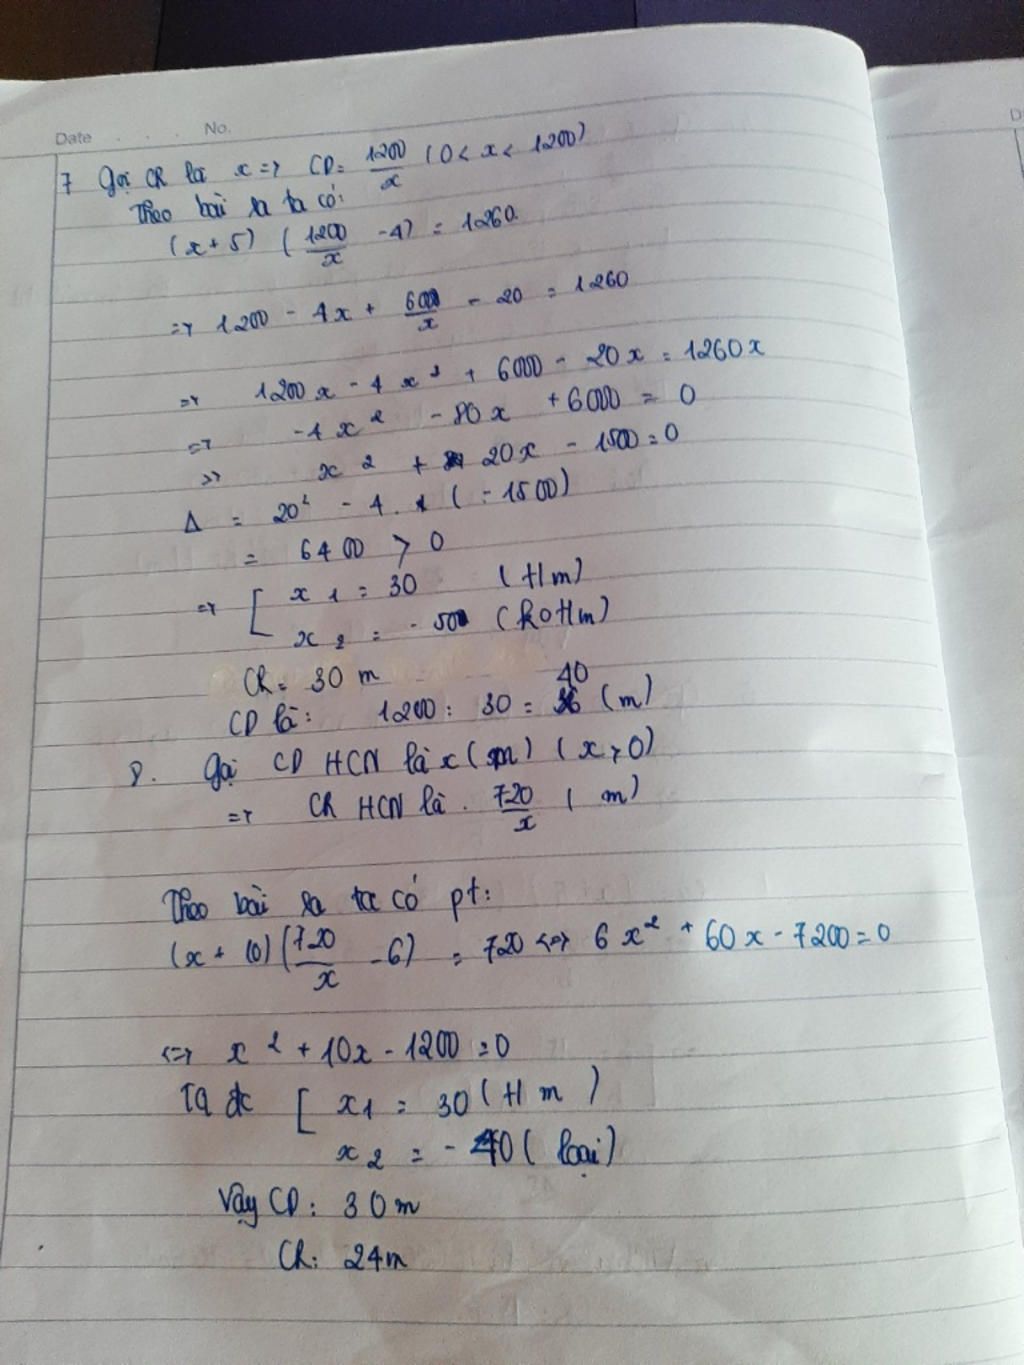 Date . . . No.
7 Gọi CR là x => CD = 1200/x (0 < x < 1200)
Theo bài ra ta có:
(x + 5) (1200/x - 4) = 1260.
=> 1200 - 4x + 6000/x - 20 = 1260
=> 1200x - 4x² + 6000 - 20x = 1260x
=> -4x² - 80x + 6000 = 0
=> x² + 20x - 1500 = 0
Δ = 20² - 4.1 (-1500)
= 6400 > 0
=> [ x1 = 30 (t/m)
x2 = -50 (k0 t/m)
CR = 30 m
CD là: 1200 : 30 = 40 (m)
8. Gọi CD HCN là x (m) (x > 0)
=> CR HCN là . 720/x (m)
Theo bài ra ta có pt:
(x + 10) (720/x - 6) = 720 <=> 6x² + 60x - 7200 = 0
<=> x² + 10x - 1200 = 0
Ta đc [ x1 = 30 (t/m)
x2 = -40 (loại)
Vậy CD: 30m
CR: 24m